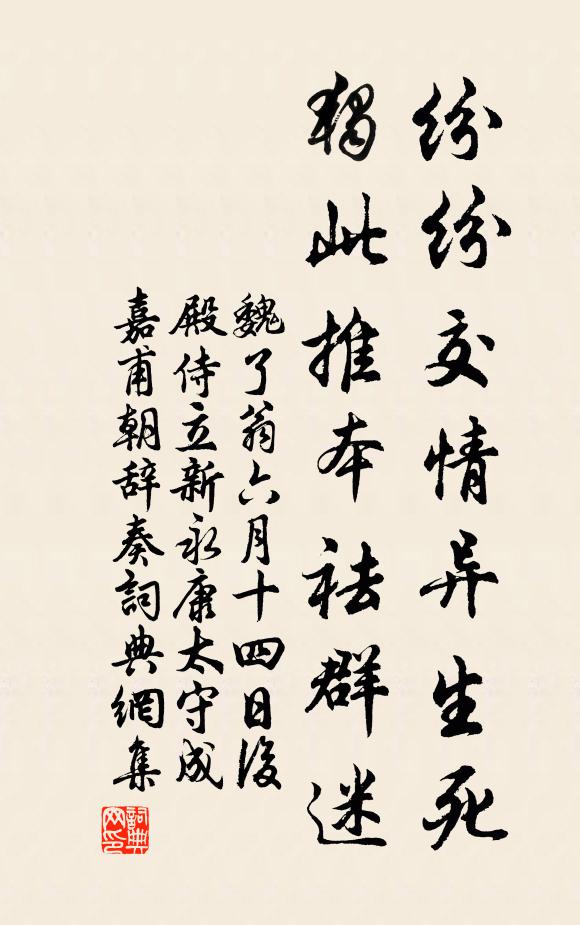 纷纷交情异生死
獨此推本祛群迷
魏了翁六月十四日後
殿侍立新永康太守成
嘉甫朝辞奏詞典網集
詞典
网印